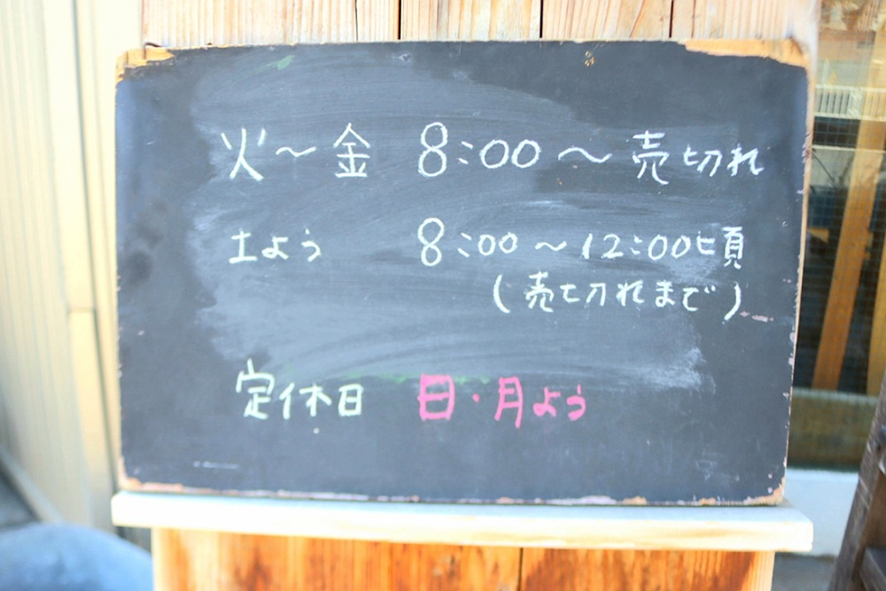 火〜金 8:00 〜 売切れ
土よう 8:00 〜 12:00頃
(売切れまで)
定休日 日・月よう